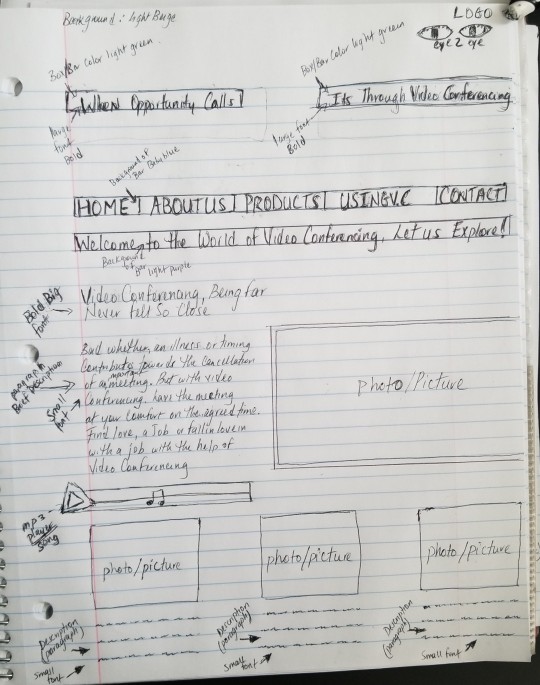 Background: light Beige
LOGO
eye 2 eye
Box/Bar Color light green
Box/Bar Color light green
When Opportunity Calls
Its Through Video Conferencing
large font Bold
large font Bold
Background of Bar Babeblue
HOME ABOUT US PRODUCTS USING V.C CONTACT
Welcome to the World of Video Conferencing, Let us Explore!
Background of Bar light purple
Bold Big font
Video Conferencing, Being far
Never felt So Close
paragraph Brief Description
Small font
Bad whether, an illness or timing
Contribute towards the Cancellation
of a meeting. But with video
Conferencing have the meeting
at your comfort on the agreed time.
Find love, a Job or fall in love in
with a job with the help of
Video Conferencing
photo/Picture
mp3 player song
photo/picture
photo/picture
photo/picture
Description (paragraph)
small font
Description (paragraph)
small font
Description (paragraph)
small font